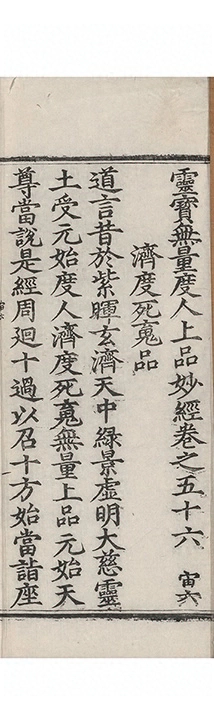 靈寶無量度人上品妙經卷之五十六 宙六
濟度死䰟品
道言昔於紫暉玄濟天中綠景虛明大慈靈
土受元始度人濟度死䰟無量上品元始天
尊當說是經周迴十過以召十方始當詣座